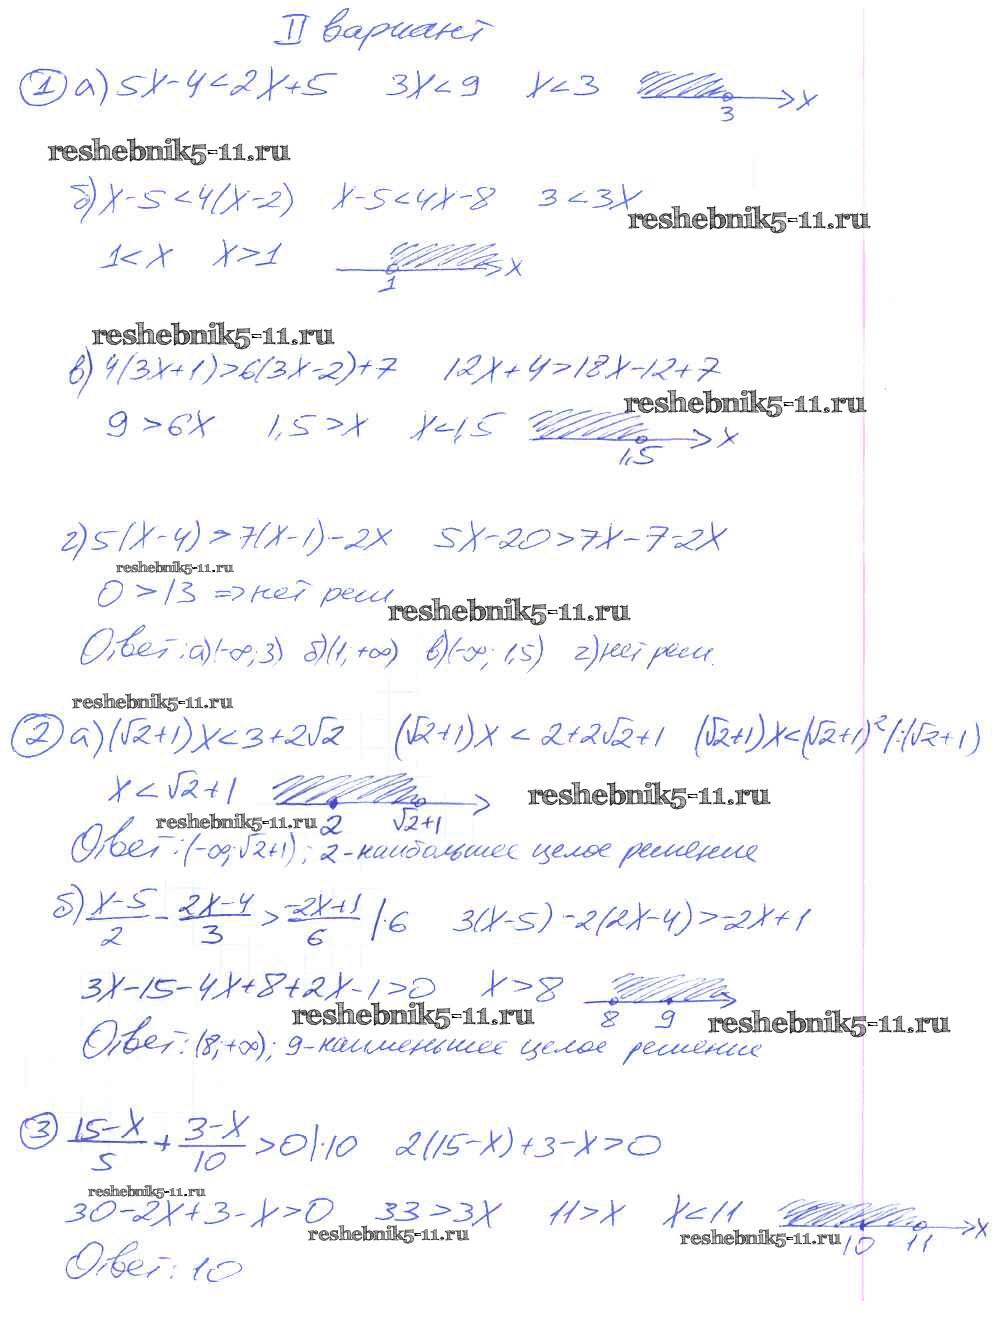 II вариант
1 а) 5x-4<2x+5 3x<9 x<3 3 x
reshebnik5-11.ru
б) x-5<4(x-2) x-5<4x-8 3<3x
reshebnik5-11.ru
1<x x>1 1 x
reshebnik5-11.ru
в) 4(3x+1)>6(3x-2)+7 12x+4>18x-12+7
reshebnik5-11.ru
9>6x 1,5>x x<1,5 1,5 x
г) 5(x-4)>7(x-1)-2x 5x-20>7x-7-2x
reshebnik5-11.ru
0>13 => нет реш
reshebnik5-11.ru
Ответ: а) (-∞; 3) б) (1, +∞) в) (-∞; 1,5) г) нет реш.
reshebnik5-11.ru
2 а) (√2+1)x<3+2√2 (√2+1)x < 2+2√2+1 (√2+1)x<(√2+1)² |:(√2+1)
x<√2+1 2 √2+1
reshebnik5-11.ru
reshebnik5-11.ru
Ответ: (-∞; √2+1); 2 - наибольшее целое решение
б) x-5/2 - 2x-4/3 > -2x+1/6 |·6 3(x-5)-2(2x-4)>-2x+1
3x-15-4x+8+2x-1>0 x>8 8 9
reshebnik5-11.ru
reshebnik5-11.ru
Ответ: (8; +∞); 9 - наименьшее целое решение
3 15-x/5 + 3-x/10 >0 |·10 2(15-x)+3-x>0
reshebnik5-11.ru
30-2x+3-x>0 33>3x 11>x x<11 10 11 x
reshebnik5-11.ru
reshebnik5-11.ru
Ответ: 10